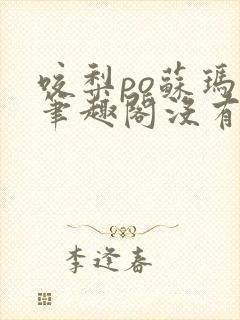 咬梨po蘇瑪
筆趣閣沒有
李逢春